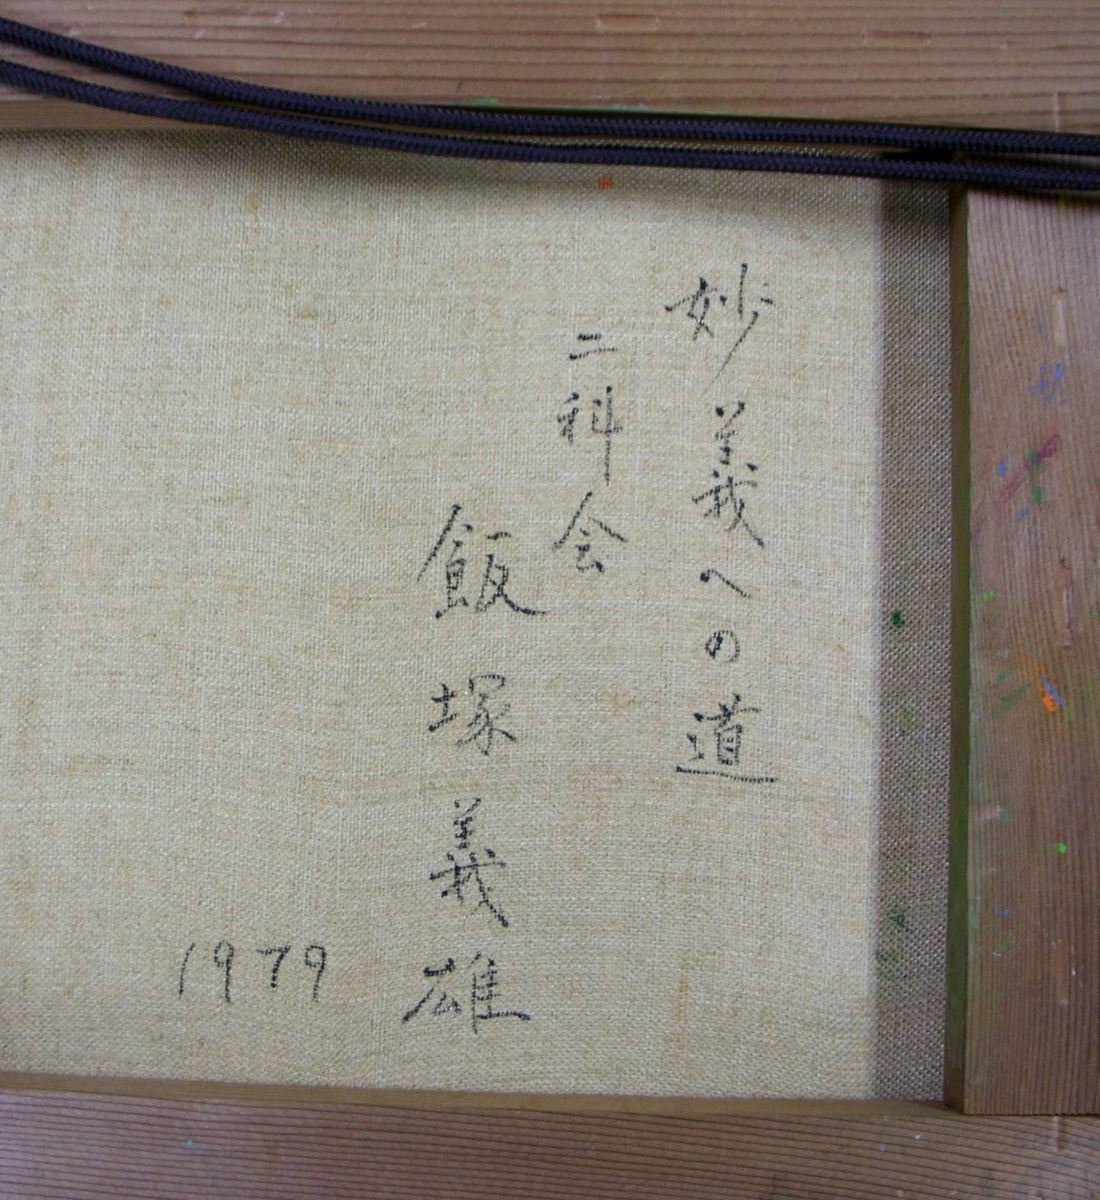 妙義への道
二科会
飯塚義雄
1979